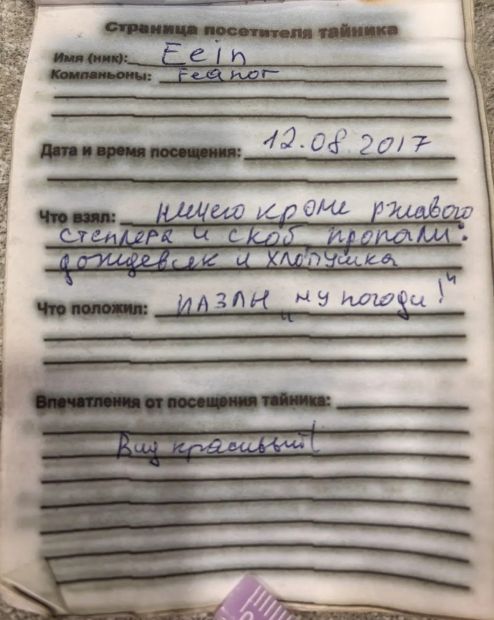 Страница посетителя тайника
Имя (ник): Eein
Компаньоны: Feanor
Дата и время посещения: 12.08.2017
Что взял: ничего кроме ржавого
степлера и скоб, пропали:
дождевик и хлопушка
Что положил: ПАЗЛЫ „Ну погоди!"
Впечатления от посещения тайника:
Вид красивый!